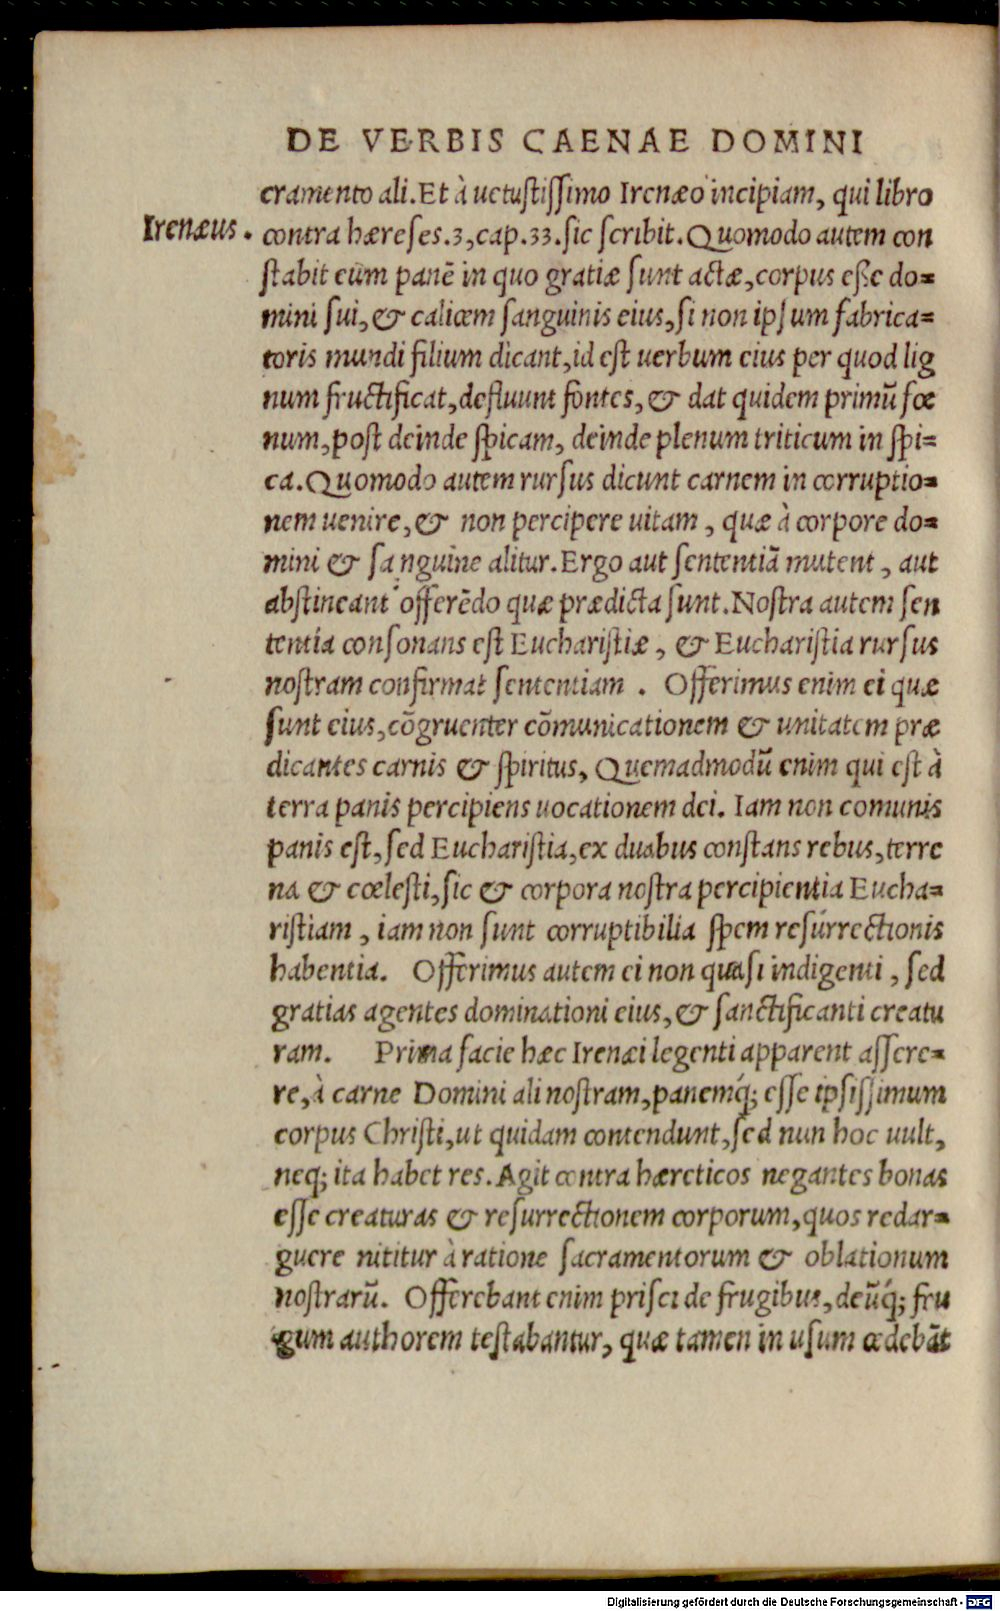 DE VERBIS CAENAE DOMINI
cramento ali. Et à uetustissimo Irenæo incipiam, qui libro
Irenæus.
contra hæreses.3,cap.33.sic scribit. Quomodo autem con
stabit eūm panē in quo gratiæ sunt actæ, corpus esse do=
mini sui, & calicem sanguinis eius, si non ipsum fabrica=
toris mundi filium dicant, id est uerbum eius per quod lig
num fructificat, defluunt fontes, & dat quidem primū fœ
num, post deinde spicam, deinde plenum triticum in spi=
ca. Quomodo autem rursus dicunt carnem in corruptio=
nem uenire, & non percipere uitam, quæ à corpore do=
mini & sanguine alitur. Ergo aut sententiā mutent, aut
abstineant offerēdo quæ prædicta sunt. Nostra autem sen
tentia consonans est Eucharistiæ, & Eucharistia rursus
nostram confirmat sententiam. Offerimus enim ei quæ
sunt eius, cōgruenter cōmunicationem & unitatem præ
dicantes carnis & spiritus, Quemadmodū enim qui est à
terra panis percipiens uocationem dei. Iam non comunis
panis est, sed Eucharistia, ex duabus constans rebus, terre
na & cœlesti, sic & corpora nostra percipientia Eucha=
ristiam, iam non sunt corruptibilia spem resurrectionis
habentia. Offerimus autem ei non quasi indigenti, sed
gratias agentes dominationi eius, & sanctificanti creatu
ram. Prima facie hæc Irenæi legenti apparent assere=
re, à carne Domini ali nostram, panemq́; esse ipsissimum
corpus Christi, ut quidam contendunt, sed nun hoc uult,
neq; ita habet res. Agit contra hæreticos negantes bonas
esse creaturas & resurrectionem corporum, quos redar=
guere nititur à ratione sacramentorum & oblationum
nostrarū. Offerebant enim prisci de frugibus, deūq́; fru
gum authorem testabantur, quæ tamen in usum cedebāt
Digitalisierung gefördert durch die Deutsche Forschungsgemeinschaft - DFG